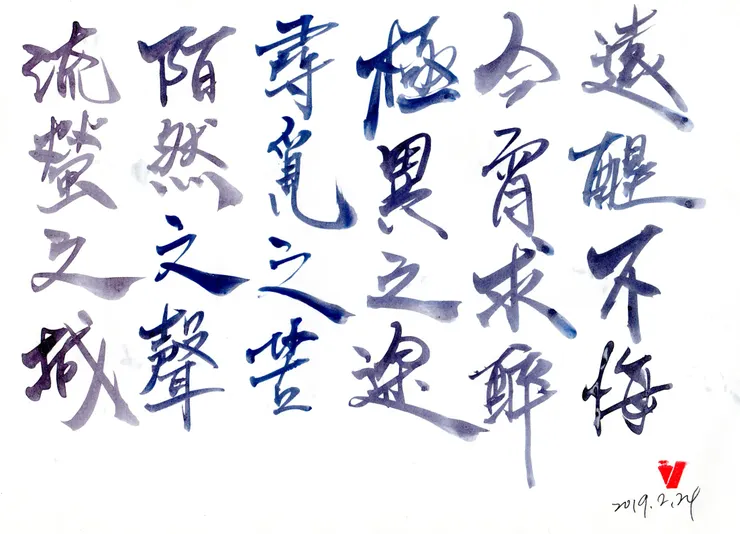 遠醒不悔
今宵求醉
極異之途
尋覓之
陌然之聲
流螢之城
2019.2.24